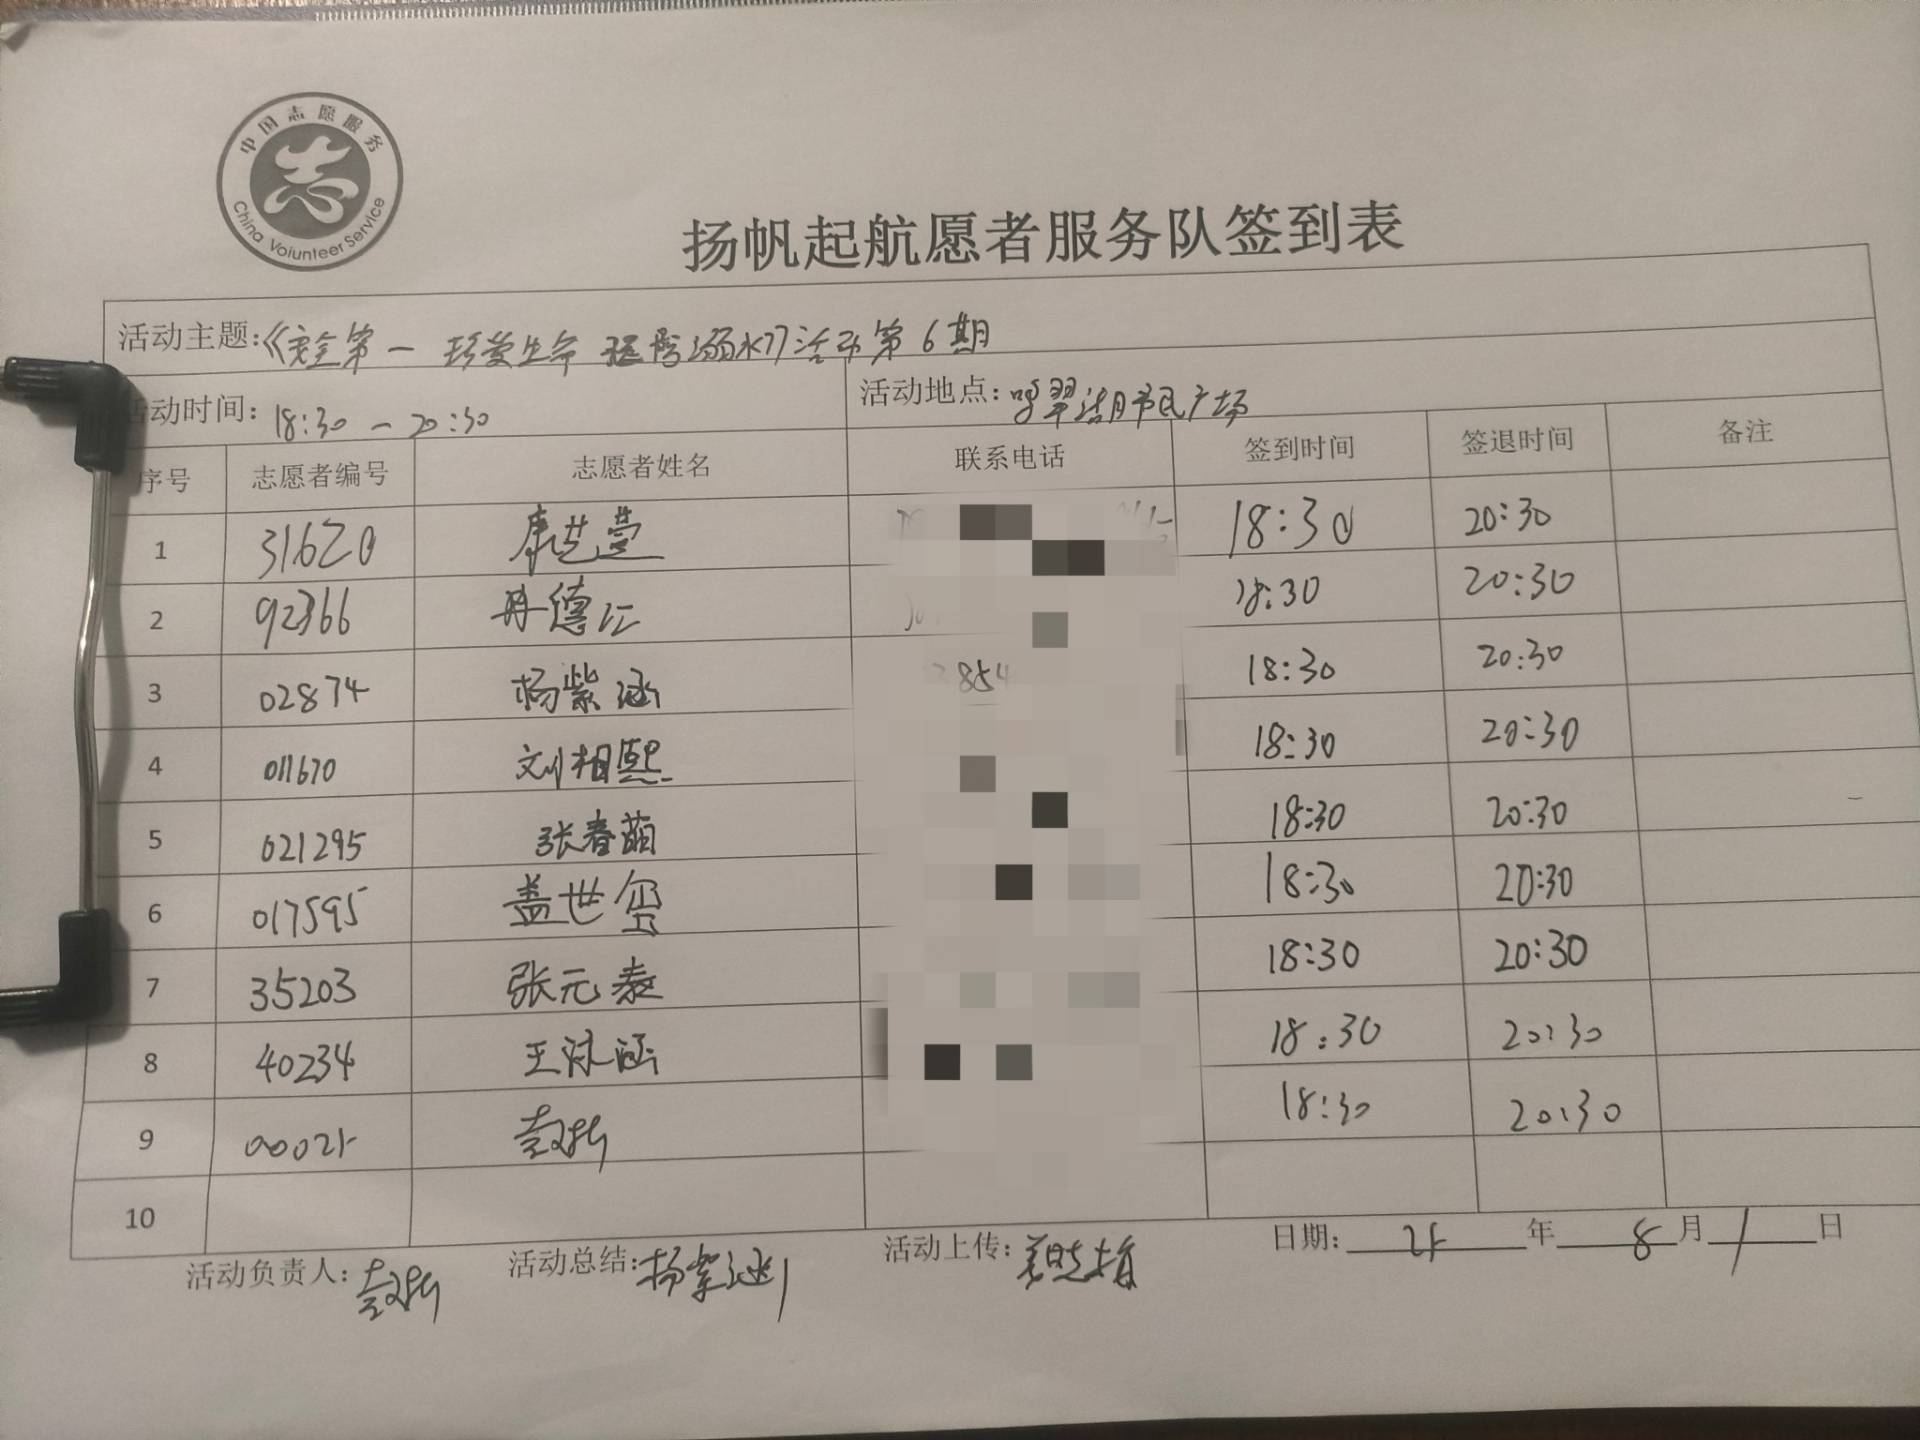 中国志愿服务
China Volunteer Service
扬帆起航愿者服务队签到表
活动主题:《安全第一 珍爱生命 预防溺水》活动第6期
活动时间: 18:30-20:30 活动地点: 鸣翠湖市民广场
序号 志愿者编号 志愿者姓名 联系电话 签到时间 签退时间 备注
1 31620 康芸萱 18:30 20:30
2 92366 冉德江 18:30 20:30
3 02874 杨紫涵 854 18:30 20:30
4 011670 刘相熙 18:30 20:30
5 021295 张春萌 18:30 20:30
6 017595 盖世玺 18:30 20:30
7 35203 张元泰 18:30 20:30
8 40234 王泳涵 18:30 20:30
9 18:30 20:30
10
活动负责人: 活动总结: 杨紫涵 活动上传: 日期: 年 8 月 1 日